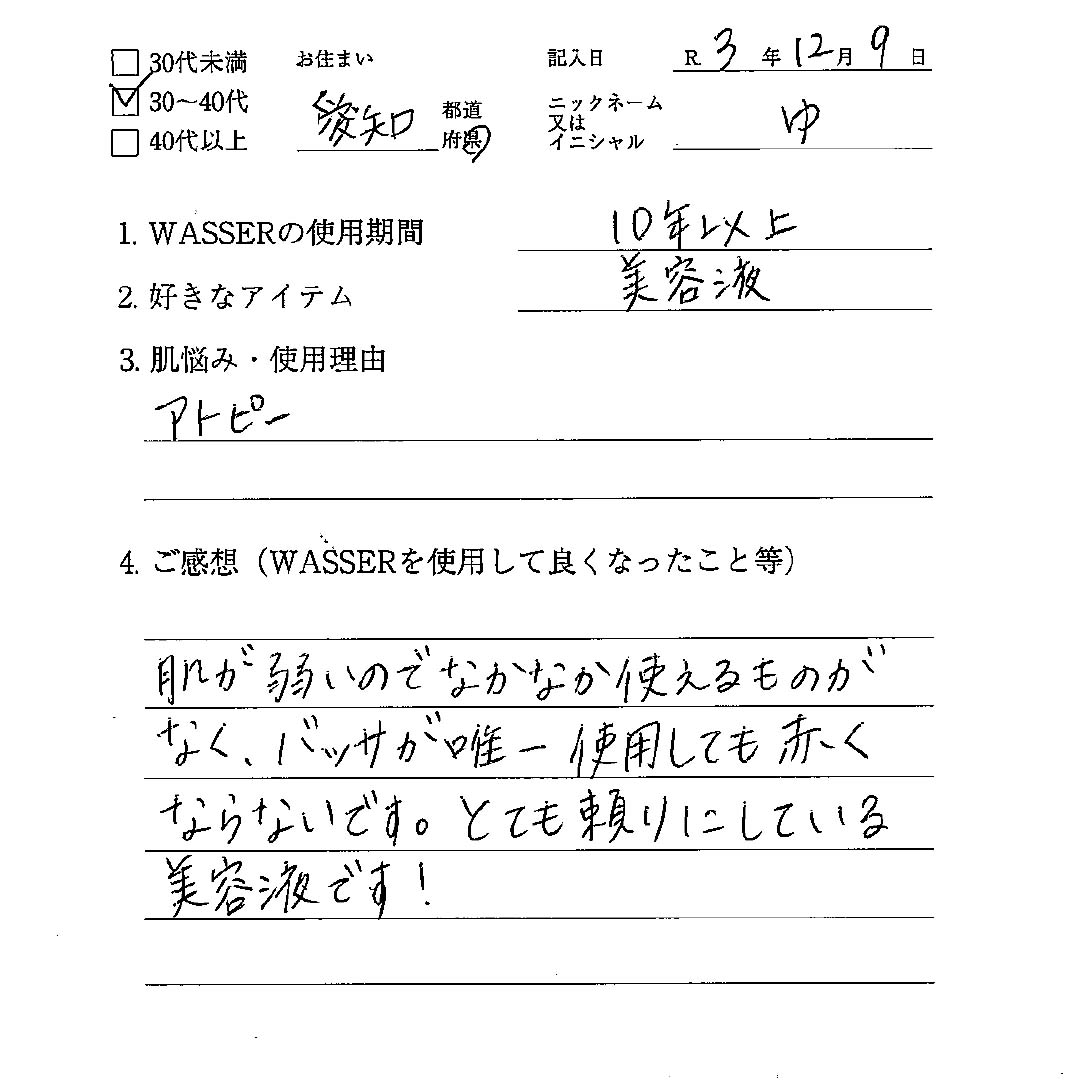 30代未満 お住まい 記入日 R 3 年 12 月 9 日
30～40代 愛知 都道府県 ニックネーム又はイニシャル ゆ
40代以上
1. WASSERの使用期間 10年以上
2. 好きなアイテム 美容液
3. 肌悩み・使用理由
アトピー
4. ご感想（WASSERを使用して良くなったこと等）
肌が弱いのでなかなか使えるものが
なく、バッサが唯一使用しても赤く
ならないです。とても頼りにしている
美容液です！